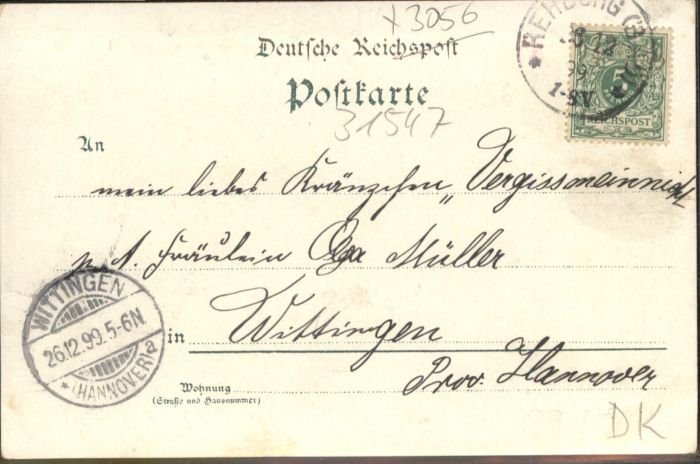 x3056
Deutsche Reichspost
Postkarte
31547
REHBURG
99
1-8V.
5
REICHSPOST
An
mein liebes Kränzchen „Vergissmeinnicht
p. A. Fräulein Müller
WITTINGEN
26.12.99.5-6N
(HANNOVER) a
in Wittingen
Prov. Hannover
Wohnung
(Straße und Hausnummer)
DK